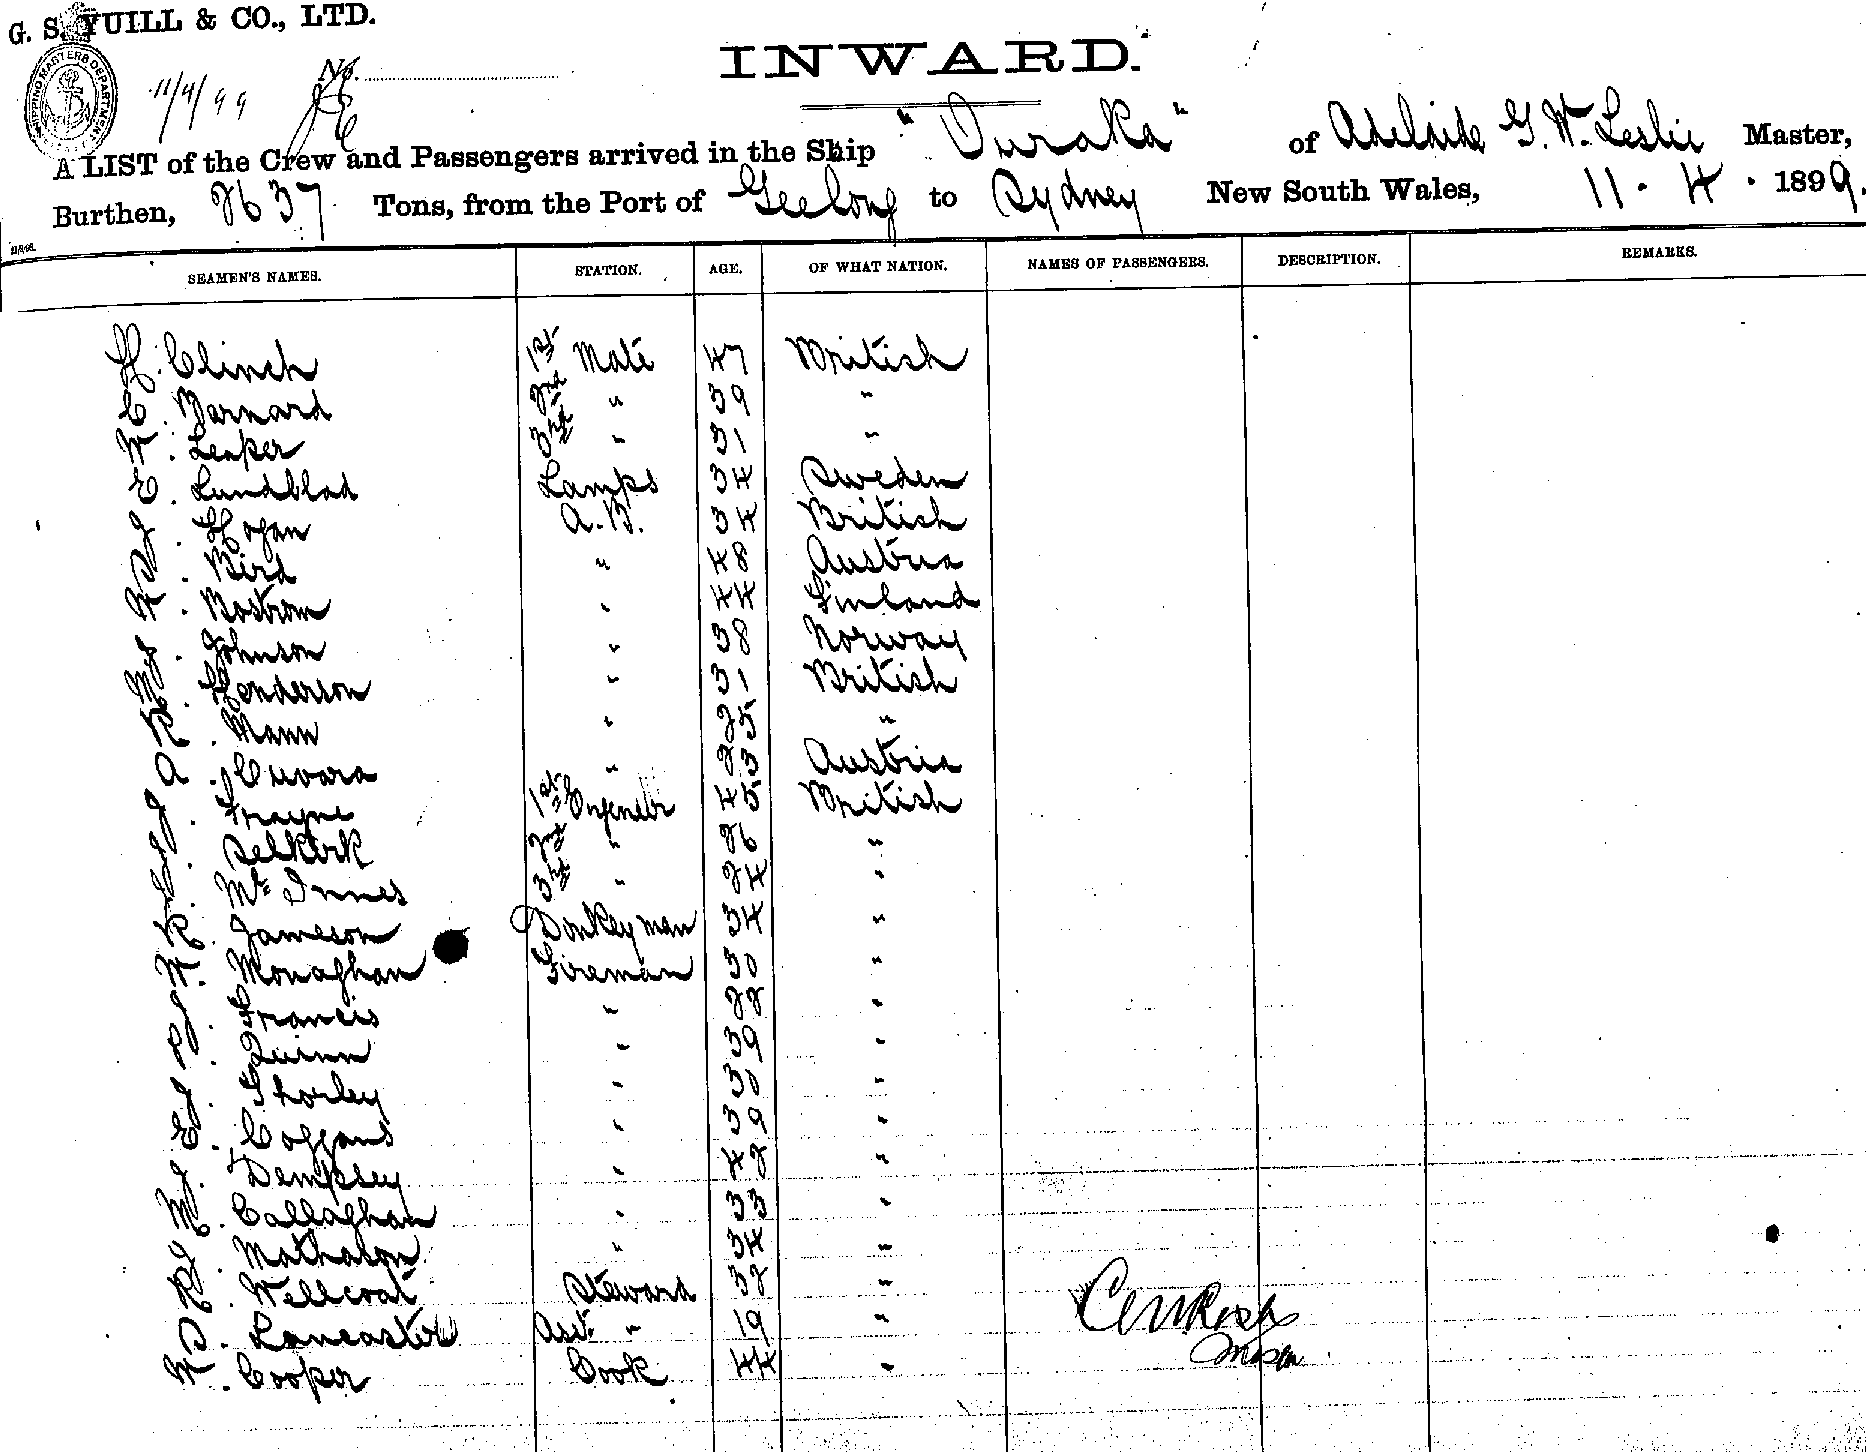 G. S. YUILL & CO., LTD.
INWARD.
No.
11/4/99
SHIPPING MASTERS DEPARTMENT
A LIST of the Crew and Passengers arrived in the Ship "Ouraka" of Adelaide G. W. Leslie Master,
Burthen, 2637 Tons, from the Port of Geelong to Sydney New South Wales, 11 . 4 . 1899.
SEAMEN'S NAMES. STATION. AGE. OF WHAT NATION. NAMES OF PASSENGERS. DESCRIPTION. REMARKS.
H. Clinch 1st Mate 47 British
C. Barnard 2nd " 39 "
W. Leaper 3rd " 31 "
E. Lundblad Lamps 34 Sweden
J. Hogan A.B. 34 British
S. Bird " 48 Austria
W. Bostrom " 44 Finland
J. Johnson " 38 Norway
M. Henderson " 31 British
R. Mann " 25 "
A. Cuvara " 23 Austria
J. Frayne 1st Engineer 45 British
J. Selkirk 2nd " 26 "
J. McInnes 3rd " 24 "
R. Jameson Donkeyman 34 "
W. Monaghan Fireman 30 "
J. Francis " 22 "
P. Quinn " 39 "
J. Shorley " 30 "
E. Coggans " 39 "
J. Dempsey " 42 "
M. Callaghan " 33 "
J. Mathason " 34 "
R. Wellcoat Steward 32 "
S. Lancaster Asst. " 19 "
W. Cooper Cook 44 "